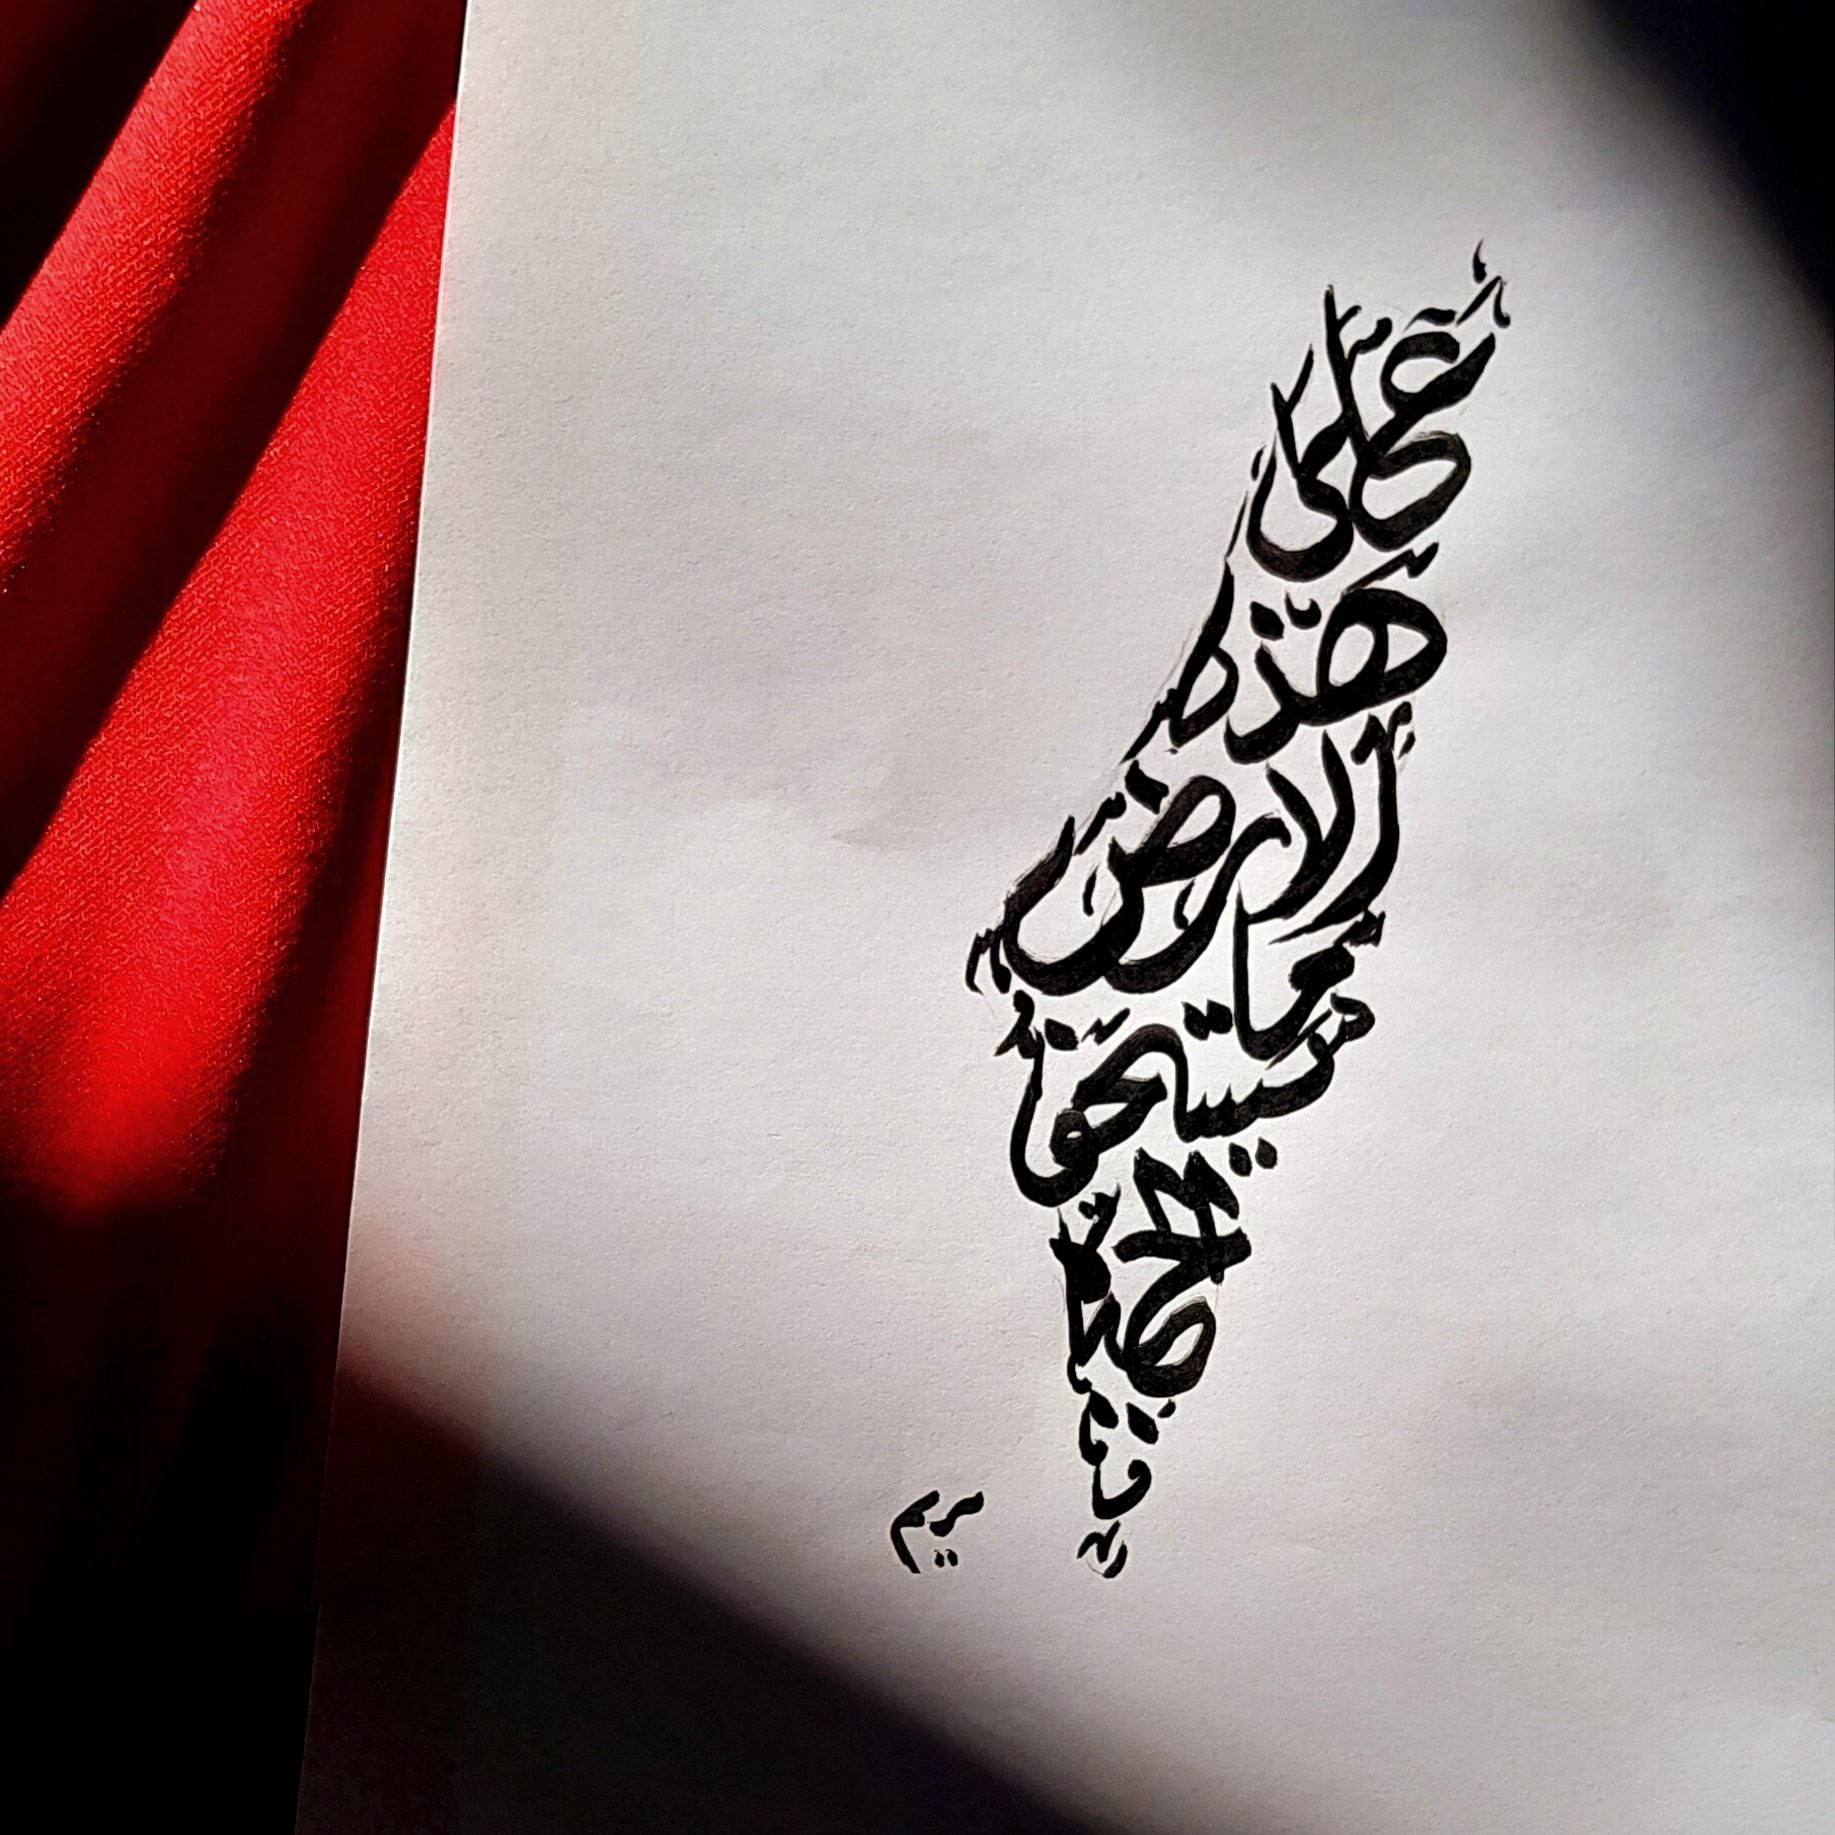 على
هذه
الأرض
ما
يستحق
الحياة
مريم